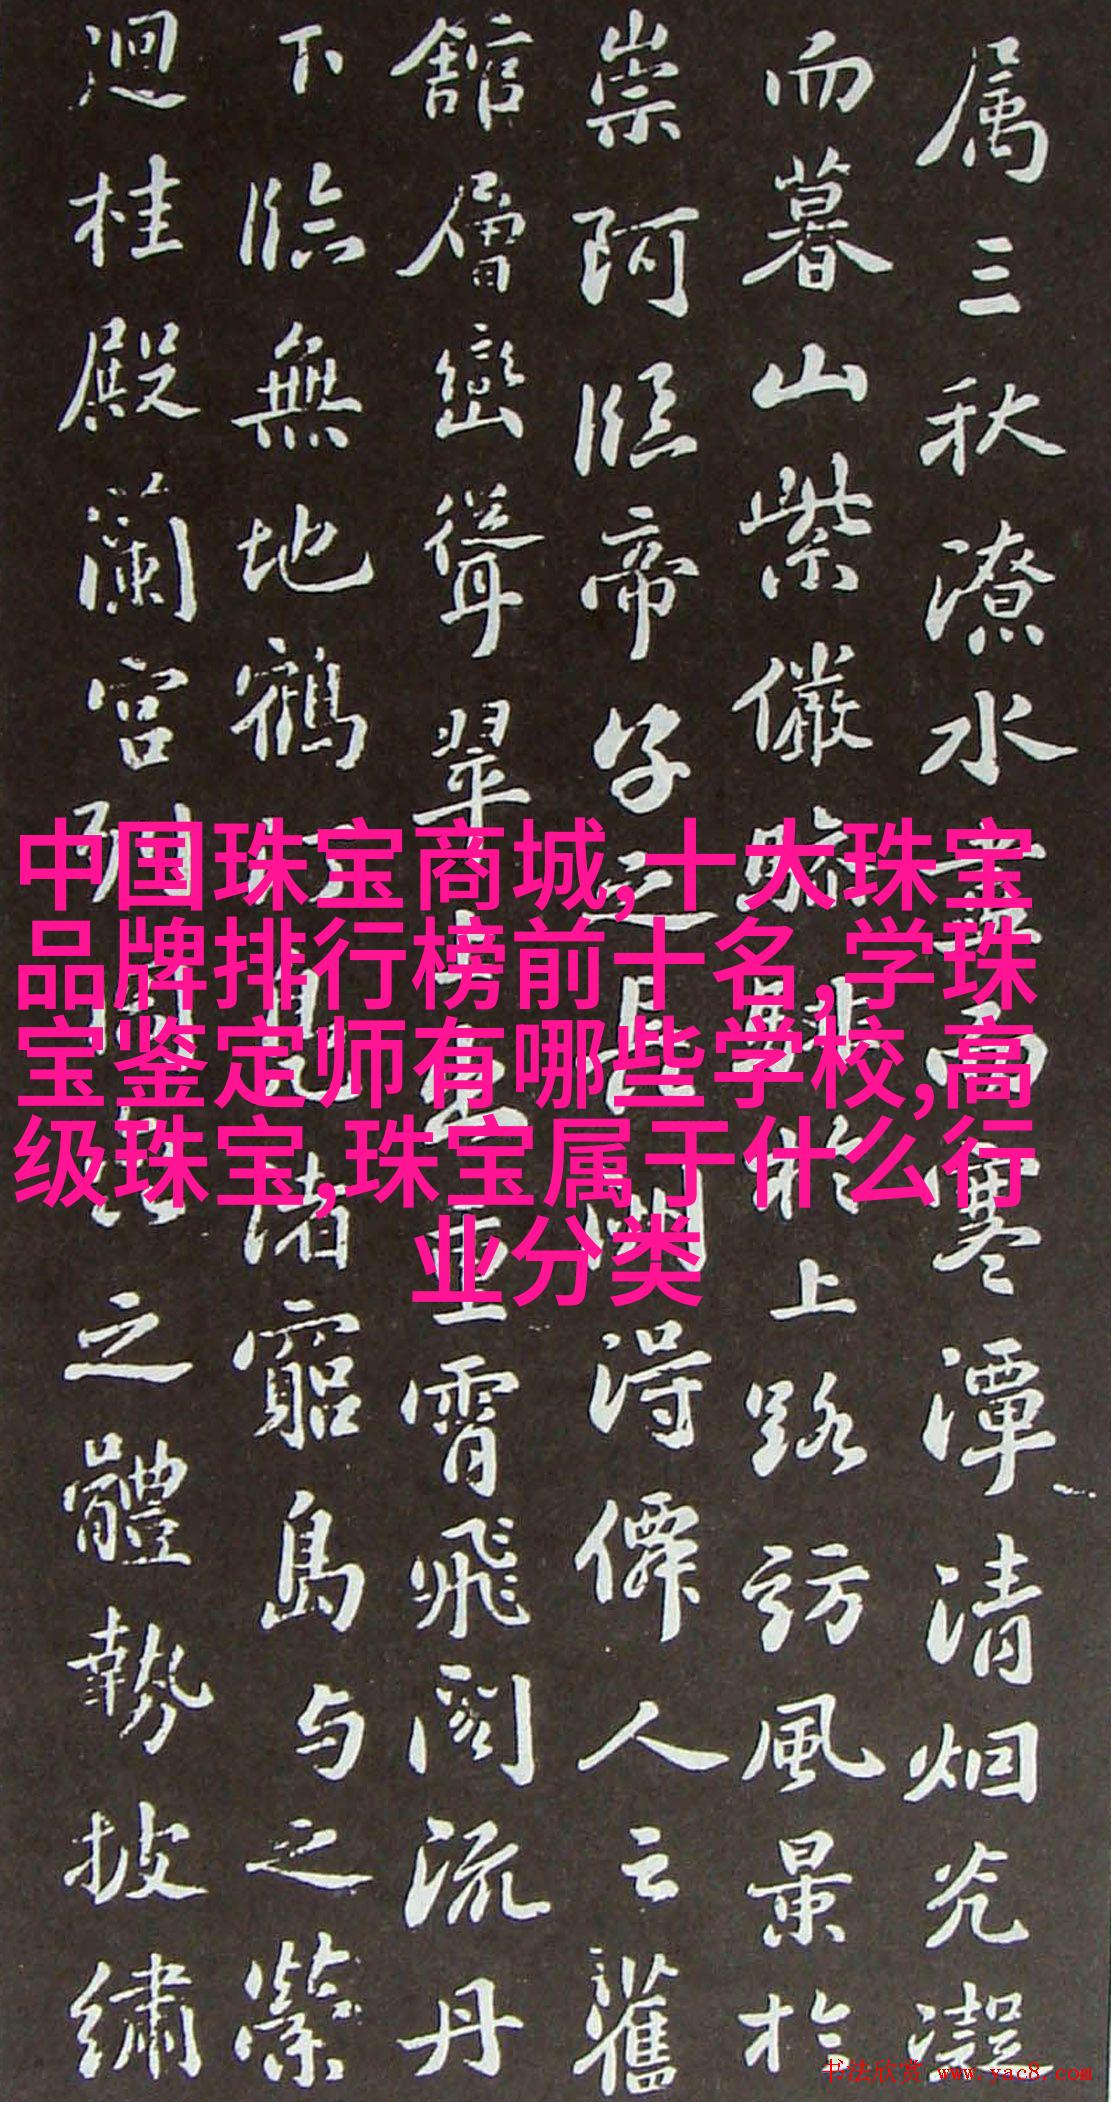 属三秋潦水盡而寒潭清烟光凝
而暮山紫儼驂騑於上路訪風景於
崇阿臨帝子之長洲得僊人之舊
館層巒聳翠上出重霄飛閣流丹
下臨無地鶴汀鳧渚窮島与之縈
迴桂殿蘭宮列岡巒之體勢披繡
中国珠宝商城,十大珠宝
品牌排行榜前十名,学珠
宝鉴定师有哪些学校,高
级珠宝,珠宝属于什么行
业分类
书法欣赏 www.yac8.com